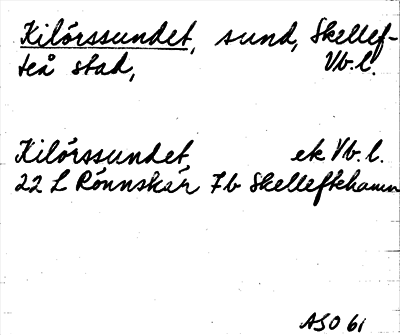 Kilörssundet, sund, Skellef-
teå stad, Vb.l.
Kilörssundet, ek Vb.l.
22 L Rönnskär 7b Skelleftehamn
ASO 61